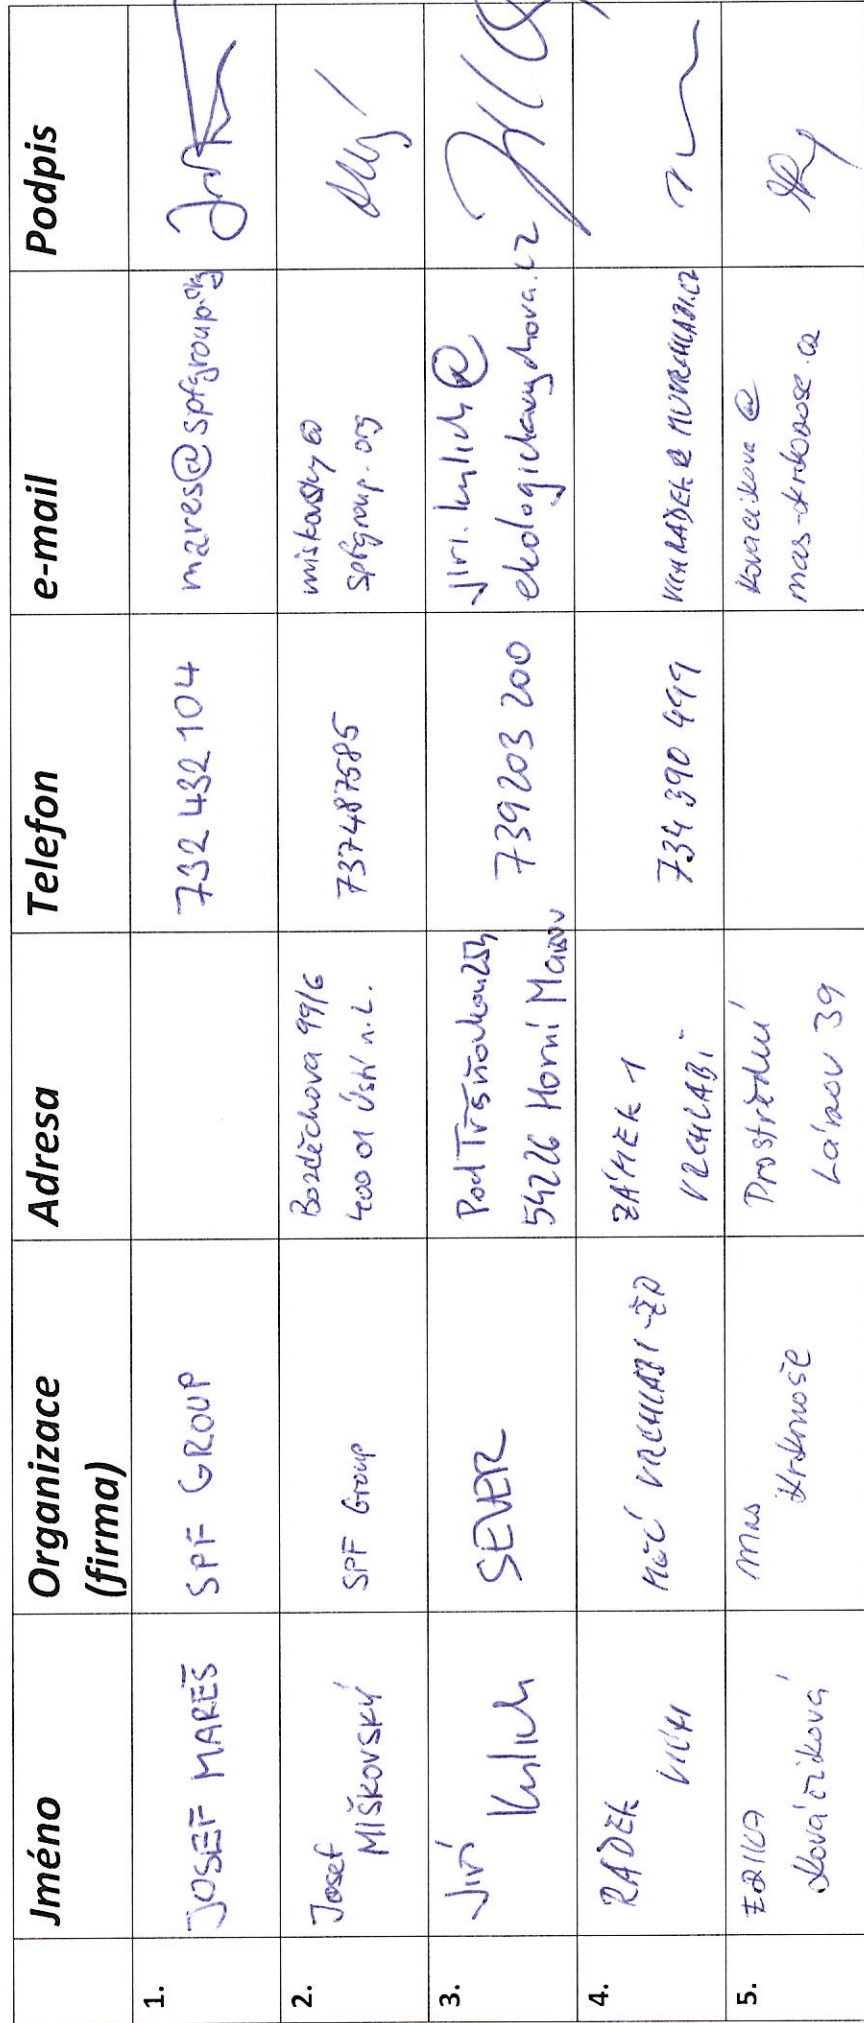 Jméno
Organizace
(firma)
Adresa
Telefon
e-mail
Podpis
1.
JOSEF MAREŠ
SPF GROUP
732 432 104
mares@spfgroup.org
2.
Josef
MIŠKOVSKÝ
SPF Group
Bozděchova 99/6
400 01 Ústí n. L.
737487585
miskovsky@
spfgroup.org
3.
Jiří
Kulich
SEVER
Horní Maršov
54226
739203 200
jiri.kulich@
ekologickavychova.cz
4.
RADEK
VICH
VRCHLABÍ - ŽP
ZÁMEK 1
VRCHLABÍ
734 390 499
VICHRADEK@MUVRCHLABI.CZ
5.
ERIKA
Kováčiková
MAS
Krkonoše
Prostřední
Lánov 39
kovacikova@
mas-krkonose.cz